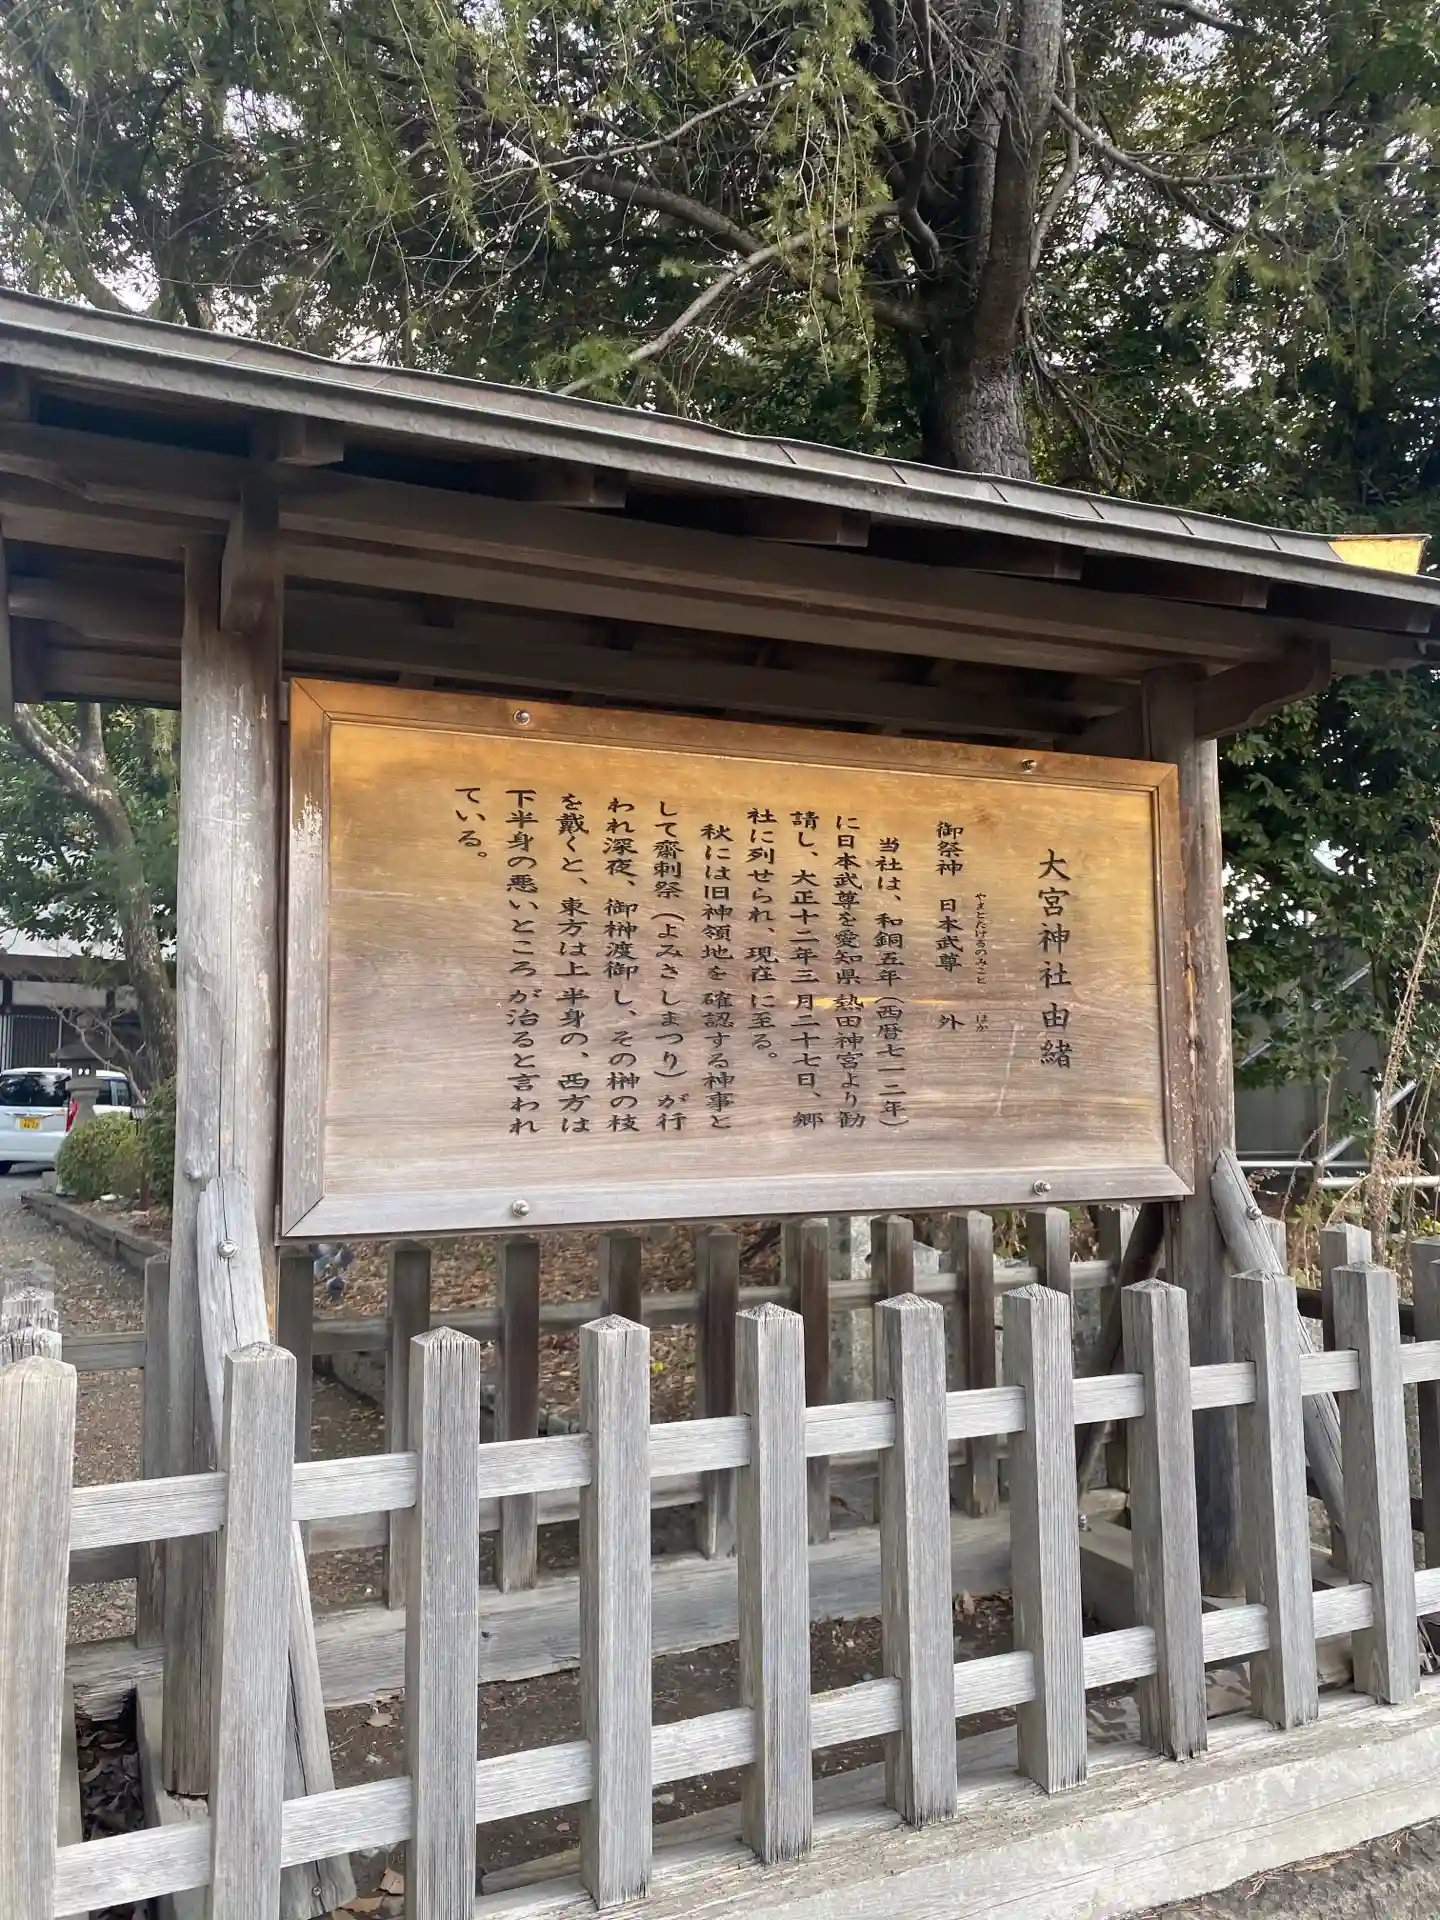 大宮神社由緒
御祭神 日本武尊 外
やまとたけるのみこと ほか
当社は、和銅五年（西暦七一二年）
に日本武尊を愛知県熱田神宮より勧
請し、大正十二年三月二十七日、郷
社に列せられ、現在に至る。
秋には旧神領地を確認する神事と
して齋刺祭（よみさしまつり）が行
われ深夜、御榊渡御し、その榊の枝
を戴くと、東方は上半身の、西方は
下半身の悪いところが治ると言われ
ている。